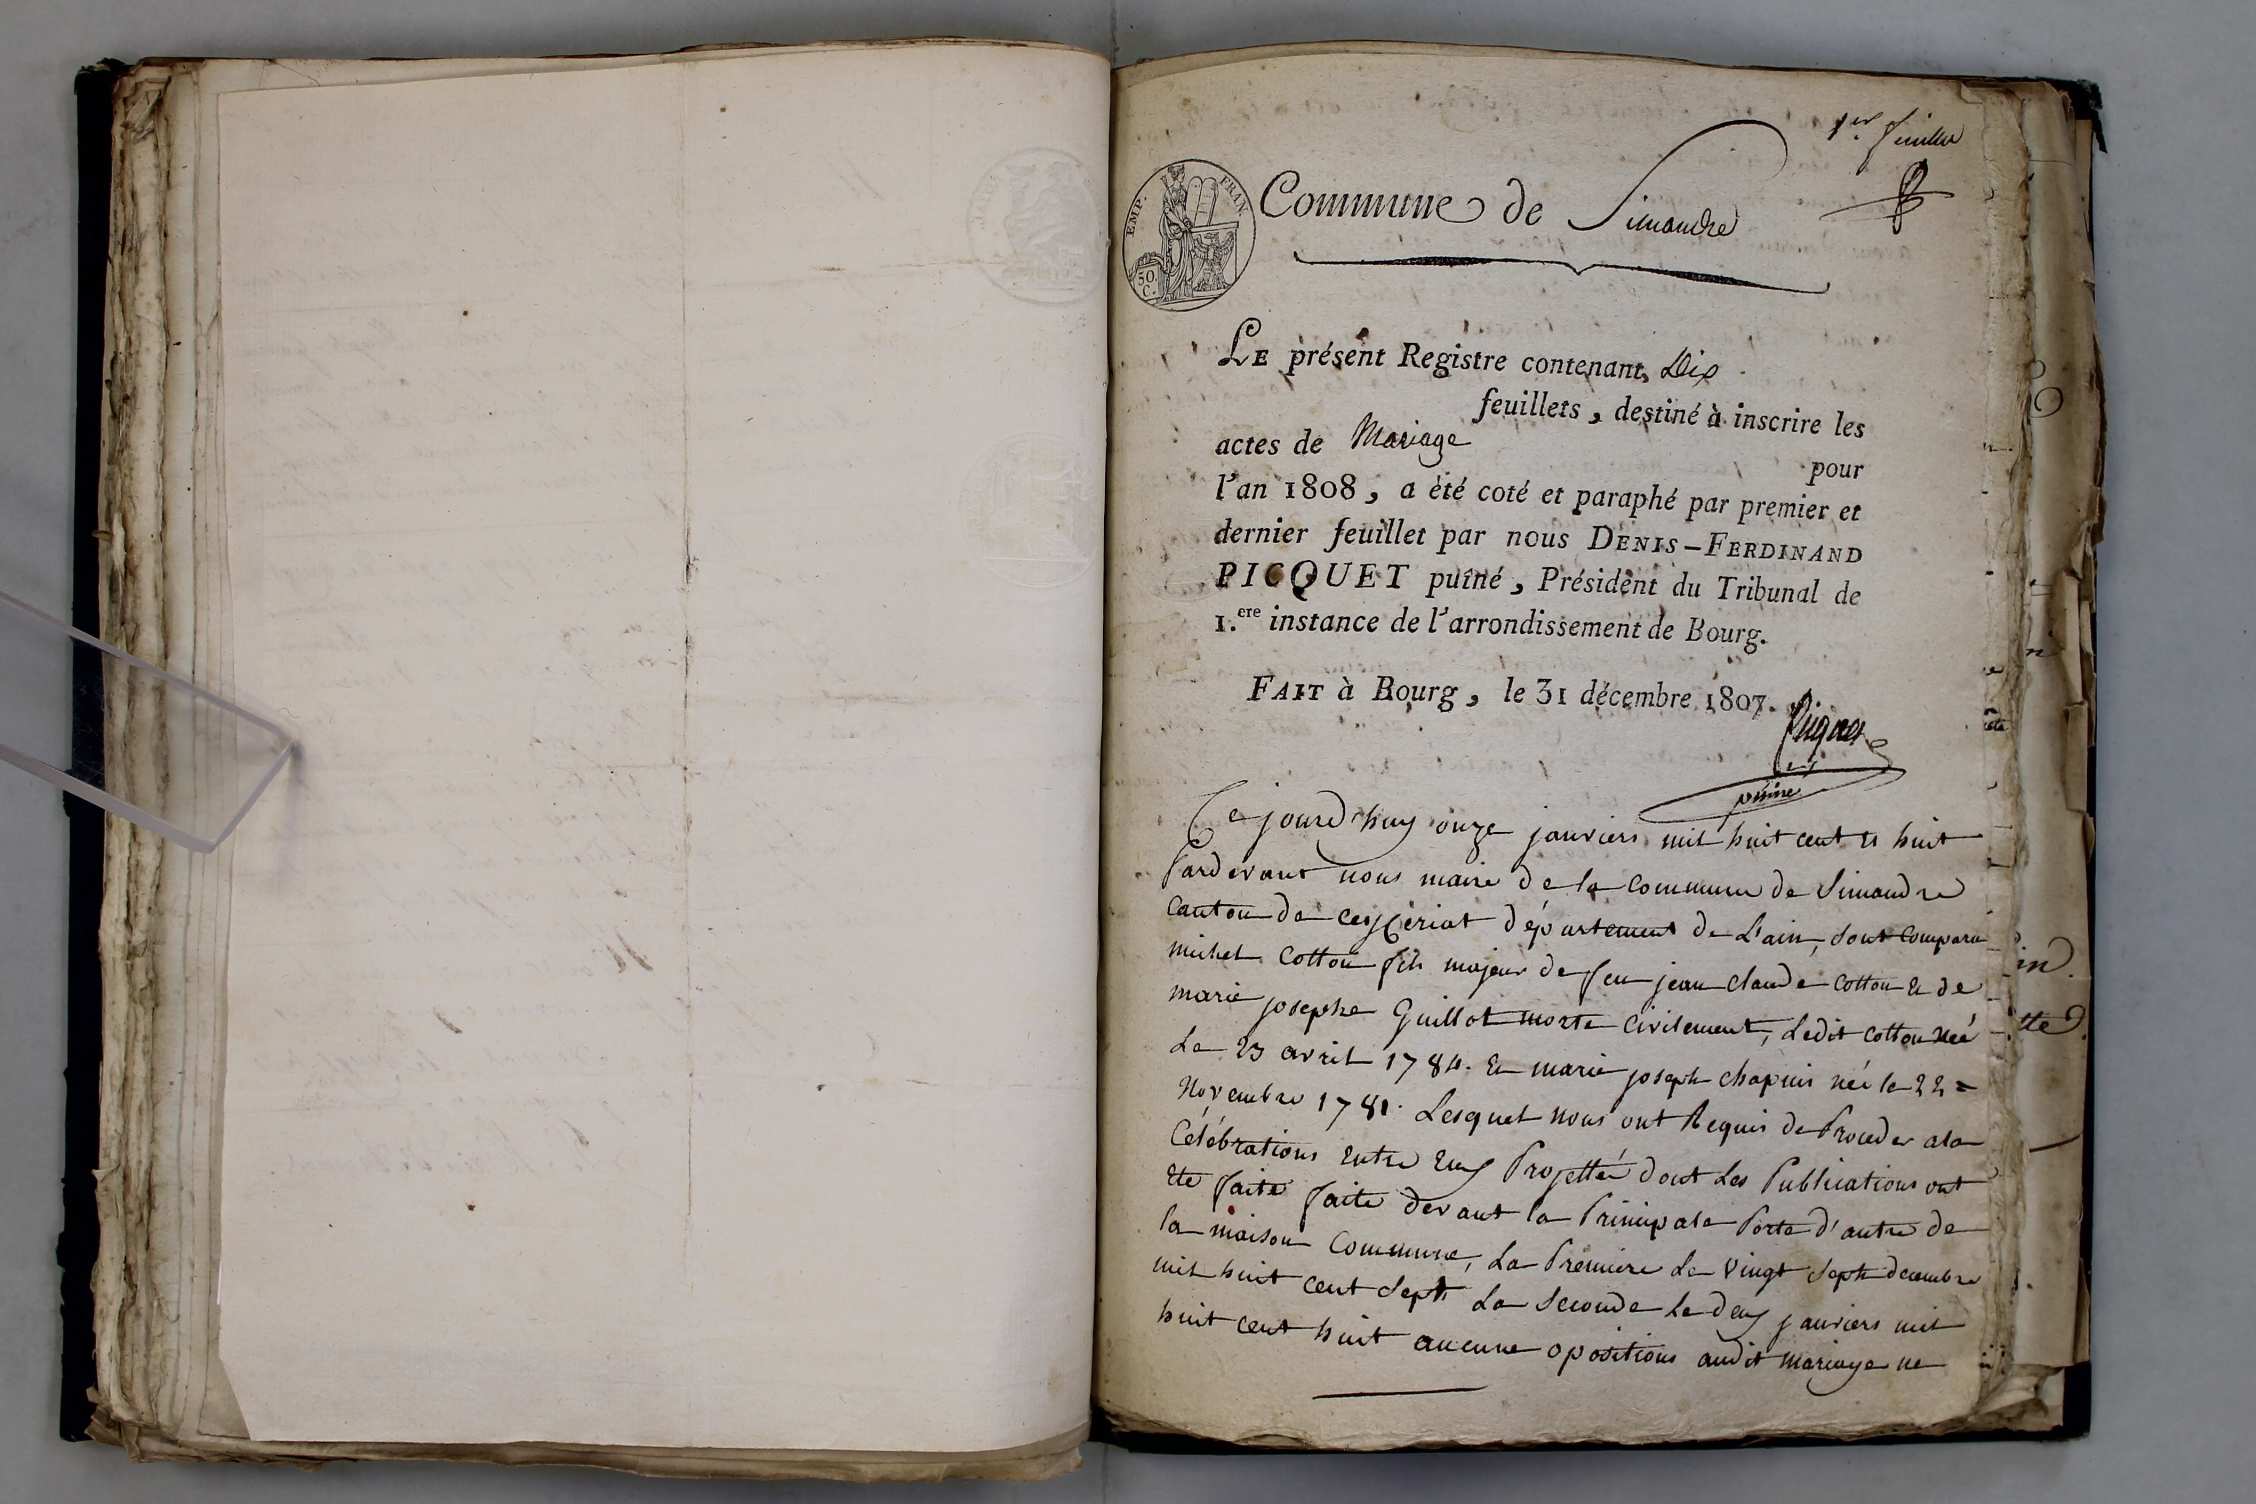 1.er feuillet
EMP. FRAN.
50. C.
Commune de Simandre
LE présent Registre contenant Dix
feuillets, destiné à inscrire les
actes de Mariage
pour
l'an 1808, a été coté et paraphé par premier et
dernier feuillet par nous DENIS-FERDINAND
PICQUET puîné, Président du Tribunal de
1.ere instance de l'arrondissement de Bourg.
FAIT à Bourg, le 31 décembre 1807.
puine
Ce jourd'huy onze janviers mil huit cent et huit
Pardevant nous maire de la commune de Simandre
canton de ceyzeriat département de L'ain, sont comparu
michel cotton fils majeur de feu jean claude cotton et de
marie josephe Guillot morte civilement, Ledit cotton née
Le 23 avril 1784. Et marie joseph chapuis née le 22=
Novembre 1781. Lesquel nous ont Requis de Proceder ala
Célébrations entre Eux Projettée dont Les Publications ont
Eté faite faite devant la Principale Porte d'antre de
la maison Commune, La Premiere Le vingt Sept decembre
mil huit cent Sept La Seconde Le deux janviers mil
huit cent huit aucune opositions audit mariage ne